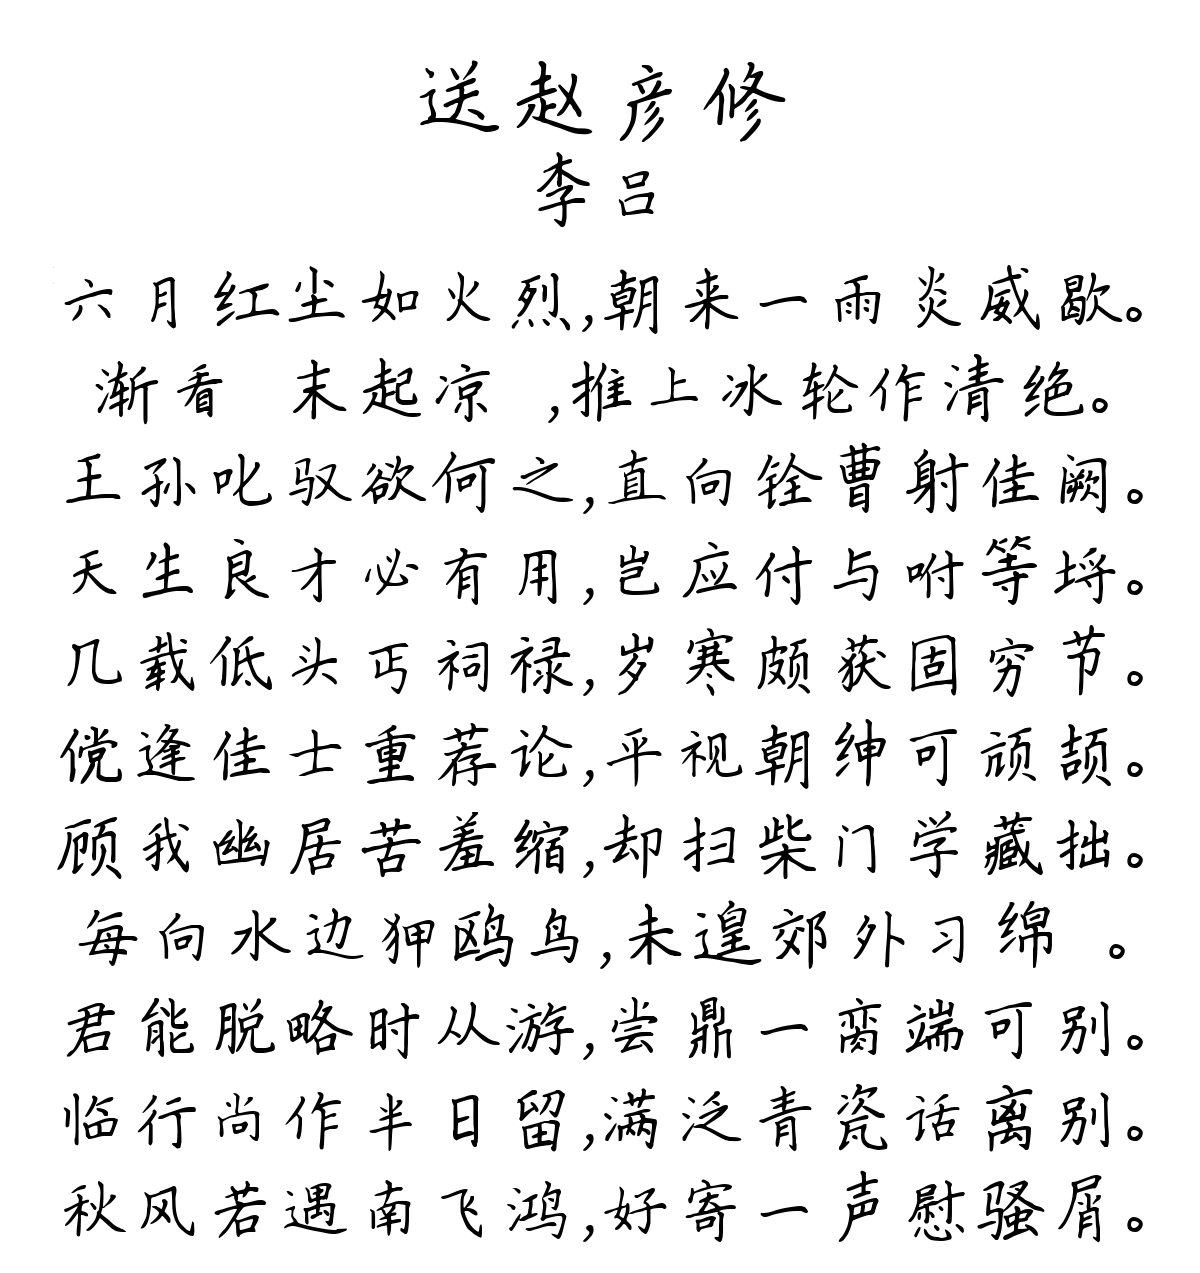 送赵彦修
李吕
六月红尘如火烈,朝来一雨炎威歇。
渐看 末起凉 ,推上冰轮作清绝。
王孙叱驭欲何之,直向铨曹射佳阙。
天生良才必有用,岂应付与咐等埒。
几载低头丐祠禄,岁寒颇获固穷节。
傥逢佳士重荐论,平视朝绅可颃颉。
顾我幽居苦羞缩,却扫柴门学藏拙。
每向水边狎鸥鸟,未遑郊外习绵 。
君能脱略时从游,尝鼎一脔端可别。
临行尚作半日留,满泛青瓷话离别。
秋风若遇南飞鸿,好寄一声慰骚屑。